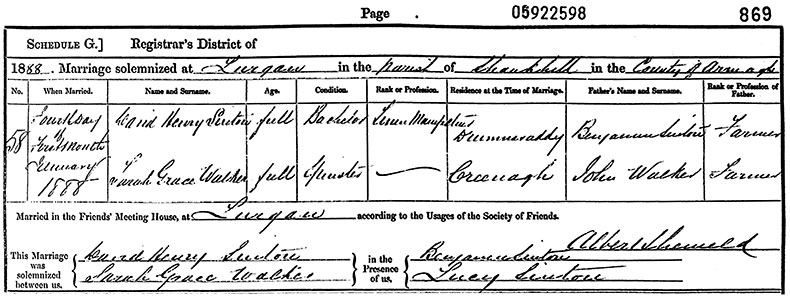 Page 05922598 869
SCHEDULE G.] Registrar's District of
1888. Marriage solemnized at Lurgan in the parish of Shankhill in the County of Armagh
No. When Married. Name and Surname. Age. Condition. Rank or Profession. Residence at the Time of Marriage. Father's Name and Surname. Rank or Profession of Father.
58 Fourth day of First Month January 1888 David Henry Sinton full Bachelor Linen Drumnavaddy Benjamin Sinton Farmer
Sarah Grace Walker full Spinster Creenagh John Walker Farmer
Married in the Friends' Meeting House, at Lurgan according to the Usages of the Society of Friends.
This Marriage was solemnized between us, David Henry Sinton in the Presence of us, Benjamin Sinton Albert
Sarah Grace Walker Lucy Sinton